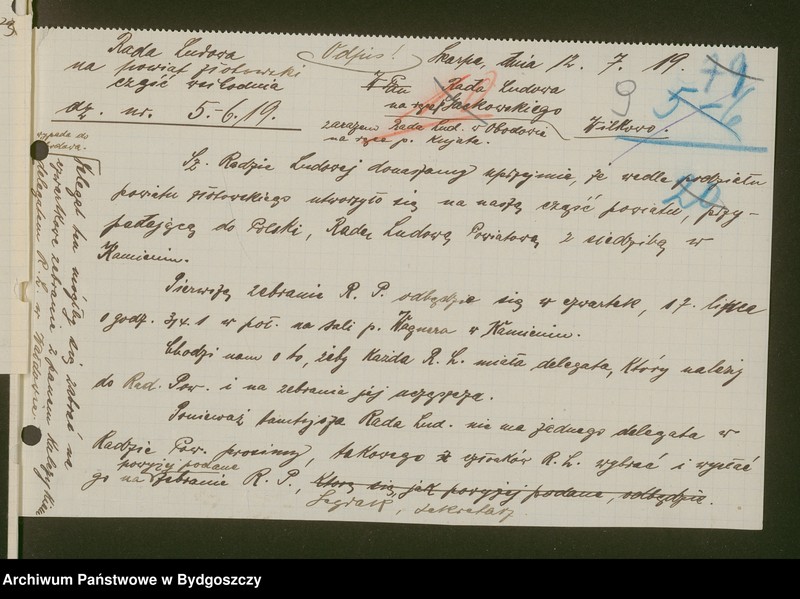 Rada Ludowa
na powiat złotowski
część wschodnia
dz. nr. 5.-6.19.
Odpis!
Skarpa, dnia 12. 7. 19
Rada Ludowa
na ręce Jaskowskiego
Witkowo.
zarazem Rada Lud. w Obodowie
na ręce p. Kujata.
79
9
5-6
20
Sz. Radzie Ludowej donaszamy uprzejmie, że wedle podziału
powiatu złotowskiego utworzyło się na naszą część powiatu, przy-
padającą do Polski, Radę Ludową Powiatową z siedzibą w
Kamieniu.
Pierwszą zebranie R. P. odbędzie się w czwartek, 17. lipca
o godz. 3/4 1 w poł. na sali p. Wagnera w Kamieniu.
Chodzi nam o to, żeby każda R. L. miała delegata, który należy
do Rad. Pow. i na zebrania jej uczęszcza.
Ponieważ tamtejsza Rada Lud. nie ma jednego delegata w
Radzie Pow. prosimy, takowego z członków R. L. wybrać i wysłać
go na powyżej podane zebranie R. P., które się, jak powyżej podane, odbędzie.
sekretarz
Delegat ten mógłby się zabrać na
czwartkowe zebranie z panem
delegatem R. L. w
Archiwum Państwowe w Bydgoszczy